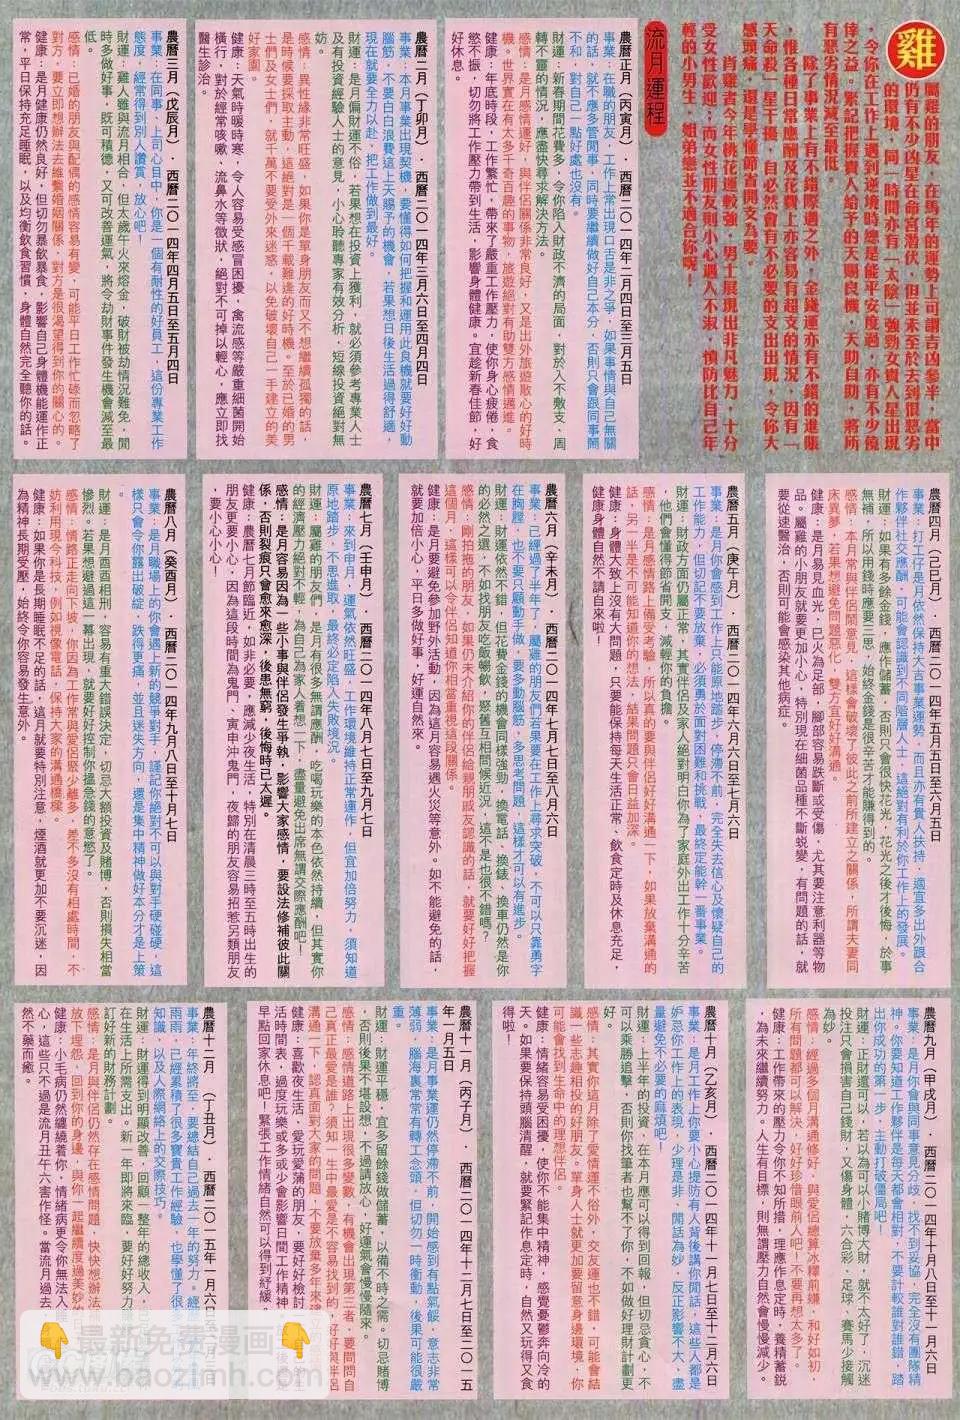 雞
屬雞的朋友，在馬年的運勢上可謂吉凶參半，當中
仍有不少凶星在命宮潛伏，但並未至於去到很惡劣
的環境，同一時間亦有「太陰」強勁女貴人星出現
，令你在工作上遇到逆境時總是能平安度過，亦有不少僥
倖之益。緊記把握貴人給予的天賜良機，天助自助，將所
有惡劣情況減至最低。
除了事業上有不錯際遇之外，金錢運亦有不錯的進賬
，惟各種日常應酬及花費上亦容易有超支的情況，因有「
天命殺」星干擾，自必然會有不必要的支出出現，令你大
感頭痛，還是學懂節省開支為要。
肖雞者今年桃花運較強，男士展現出非凡魅力，十分
受女性歡迎；而女性朋友則小心遇人不淑，慎防比自己年
輕的小男生，姐弟戀並不適合你呢！
流月運程
農曆正月（丙寅月），西曆二〇一四年二月四日至三月五日
事業：在職的朋友，工作上常出現口舌是非之爭，如果事情與自己無關
的話，就不應多管閒事，同時要繼續做好自己本分，否則只會跟同事鬧
不和，對自己一點好處也沒有。
財運：新春期間花費多，令你陷入財政不濟的局面，對於入不敷支、周
轉不靈的情況，應盡快尋求解決方法。
感情：是月感情與伴侶非常良好，又是出外旅遊散心的好時
機。世界實在有太多千奇百趣的事物，旅遊絕對有助雙方感情邁進。
健康：年底時段，工作繁忙，帶來了嚴重工作壓力，使你身心疲倦，食
慾不振，切勿將工作壓力帶到生活，影響身體健康。宜趁新春佳節，好
好休息。
農曆二月（丁卯月），西曆二〇一四年三月六日至四月四日
事業：本月事業出現契機，要懂得如何把握和運用此良機就要好好動
腦筋，不要白白浪費這上天賜予的機會，若果想日後生活過得舒適，
現在就要全力以赴，把工作做到最好。
財運：是月偏財運不俗，若果想在投資上獲利，就必須參考專業人士
及有投資經驗人士的意見，小心聆聽專家有效分析，短線投資絕對無
妨。
感情：異性緣非常旺盛，如果你是單身朋友而又不想繼續孤獨的話，
是時候要採取主動，這絕對是一個千載難逢的好時機。至於已婚的男
士們及女士們，就千萬不要受外來迷惑，以免破壞自己一手建立的美
好家園。
健康：天氣時暖時寒，令人容易受感冒困擾，禽流感等嚴重細菌開始
橫行，對於經常咳嗽、流鼻水等徵狀，絕對不可掉以輕心，應立即找
醫生診治。
農曆三月（戊辰月），西曆二〇一四年四月五日至五月四日
事業：在同事、上司心目中，你是一個有耐性的好員工，這份專業工作
態度，經常得到別人讚賞，放心吧！
財運：雞人雖與流月相合，但太歲午火來熔金，破財被劫情況難免，閒
時多做好事，既可積德，又可改善運氣，將令劫財事件發生機會減至最
低。
感情：已婚的朋友與配偶的感情容易有變，可能平日工作忙碌而忽略了
對方，要立即想辦法去維繫婚姻關係，對方是很渴望得到你的關心的。
健康：是月健康仍然良好，但切勿暴飲暴食，影響自己身體機能運作正
常，平日保持充足睡眠，以及均衡飲食習慣，身體自然完全聽你的話。
農曆四月（己巳月），西曆二〇一四年五月五日至六月五日
事業：打工仔是月依然保持大吉事業運勢，而且亦有貴人扶持，適宜多出外跟合
作夥伴社交應酬，可能會認識到不同階層人士，這絕對有利於你工作上的發展。
財運：如果有多餘金錢，應作儲蓄，否則只會很快花光，花光之後才後悔，於事
無補，所以用錢時應要三思，始終金錢是很辛苦才能賺得到的。
感情：本月常與伴侶鬧意見，這樣會破壞了彼此之前所建立之關係，所謂夫妻同
床異夢，若果想避免問題惡化，雙方宜好好溝通。
健康：是月易見血光，巳火為足部，腳部容易跌斷或受傷，尤其要注意利器等物
品。屬雞的小朋友就要更加小心，特別現在細菌品種不斷蛻變，有問題的話，就
要從速醫治，否則可能會感染其他病症。
農曆五月（庚午月），西曆二〇一四年六月六日至七月六日
事業：是月你會感到工作上只能原地踏步，停滯不前，完全失去信心及懷疑自己的
工作能力，但切記不要放棄，必須勇於面對困難和挑戰，最終定能幹一番事業。
財運：財政方面仍屬正常，其實伴侶及家人絕對明白你為了家庭外出工作十分辛苦
，他們會懂得節省開支，減輕你的負擔。
感情：是月感情路上備受考驗，所以真的要與伴侶好好溝通一下，如果放棄溝通的
話，另一半是不可能知道你的想法，結果問題只會日益加深。
健康：身體大致上沒有大問題，只要能保持每天生活正常、飲食定時及休息充足，
健康身體自然不請自來啦！
農曆六月（辛未月），西曆二〇一四年七月七日至八月六日
事業：已經過了半年了，屬雞的朋友們若果要在工作上尋求突破，不可以只靠勇字
在胸膛，也不要只顧動手做，要多動腦筋，多思考問題，這樣才可以有進步。
財運：財運依然不錯，但花費金錢的機會同樣強勁，換電話、換錶、換車仍然是你
的必然之選，不如找朋友吃飯暢飲，聚舊互相問候近況，這不是也很不錯嗎？
感情：剛拍拖的朋友，如果仍未介紹你的伴侶給親朋戚友認識的話，就要好好把握
這個月，這樣可以令伴侶知道你相當重視這段關係。
健康：是月要避免參加野外活動，因為這月容易遇火災等意外。如不能避免的話，
就要加倍小心，平日多做好事，好運自然來。
農曆七月（壬申月），西曆二〇一四年八月七日至九月七日
事業：來到申月，運氣依然旺盛，工作環境維持正常運作，但宜加倍努力，須知道
原地踏步，不思進取，最終必定陷入失敗境況。
財運：屬雞的朋友們，是月有很多無謂應酬，吃喝玩樂的本色依然持續，但其實你
的經濟壓力絕對不輕，為自己為家人着想一下，盡量避免出席無謂交際應酬吧！
感情：是月容易因為一些小事與伴侶發生爭執，影響大家感情，要設法修補彼此關
係，否則裂痕只會愈來愈深，後患無窮，後悔時已太遲。
健康：農曆七月節臨近，如非必要，應減少夜生活，特別在清晨三時至五時出生的
朋友更要小心，因為這段時間為鬼門，寅申沖鬼門，夜歸的朋友容易招惹另類朋友
，要小心小心。
農曆八月（癸酉月），西曆二〇一四年九月八日至十月七日
事業：是月職場上的你會遇上新的競爭對手，謹記你絕對不可以與對手硬碰硬，這
樣只會令你露出破綻，跌得更痛，並且迷失方向，還是集中精神做好本分才是上策
。
財運：是月酉酉相刑，容易有重大錯誤決定，切忌大額投資及賭博，否則損失相當
慘烈。若果想避過這一幕出現，就要好好控制你搵急錢的意慾了。
感情：情路正走向下坡，你因為工作常與愛侶聚少離多，差不多沒有相處時間，不
妨利用現今科技，例如視像電話，保持大家的溝通橋樑。
健康：如果你是長期睡眠不足的話，這月就要特別注意，煙酒就更加不要沉迷，因
為精神長期受壓，始終令你容易發生意外。
農曆九月（甲戌月），西曆二〇一四年十月八日至十一月六日
事業：是月你會與同事意見分歧，找不到妥協，完全沒有團隊精
神。你要知道工作夥伴是每天都會相對，不要計較誰對誰錯，踏
出你成功的第一步，主動打破僵局吧！
財運：正財還可以，但別以為可以小賭博大財，就不太好了，沉迷
投注只會損害自己錢財，又傷身體，六合彩、足球、賽馬少接觸
為妙。
感情：經過多個月溝通修好，與愛侶總算冰釋前嫌，和好如初，
所有問題都可以解決，好好珍惜眼前人吧，不要再想太多了。
健康：工作帶來的壓力令你不知所措，理應作息定時，養精蓄銳
，為未來繼續努力。人生有目標，則無謂壓力自然會慢慢減少。
農曆十月（乙亥月），西曆二〇一四年十一月七日至十二月六日
事業：是月工作上你要小心提防有人背後講你閒話，這些人都是
妒忌你工作上的表現，少理是非、閒話為妙，反正影響不大，盡
量避免不必要的麻煩吧！
財運：上半年的投資，在本月應可以得到回報，但切忌貪心，不
可以乘勝追擊，否則你找筆者也幫不了你，不如做好理財計劃更
好。
感情：其實你這月除了愛情運不俗外，交友運也不錯，可能會結
識一些志趣相投的好朋友。單身人士就更加要留意身邊環境，你
可能會找到生命中的理想伴侶。
健康：情緒容易受困擾，使你不能集中精神，感覺憂鬱奔向冷的
天。如果要保持頭腦清醒，就要緊記作息定時，自然又玩得又食
得啦！
農曆十一月（丙子月），西曆二〇一四年十二月七日至二〇一五
年一月五日
事業：是月事業運仍然停滯不前，開始感到有點氣餒，意志非常
薄弱，腦海裏常常有轉工念頭，但切勿一時衝動，後果可能很嚴
重。
財運：財運平穩，宜多留餘錢做儲蓄，以備不時之需。切忌賭博
，否則後果不堪設想，不過請放心，好運氣會慢慢隨來。
感情：感情道路上出現很多變數，有機會出現第三者，要問問自
己真正最愛是誰？須知一生中最愛是不容易找到的，好好與伴侶
溝通一下，認真面對大家的問題，不要放棄多年來建
健康：喜歡夜生活，愛玩愛蒲的朋友，要好好檢討
活時間表，過度玩樂或多或少會影響日間工作精神，
早點回家休息吧！緊張工作情緒自然可以得到紓緩，
農曆十二月（丁丑月），西曆二〇一五年一月六日
事業：年終將至，要總結自己過去一年的努力。經
雨雨，已經累積了很多寶貴工作經驗，也學懂了很
知識，以及人際網絡上的交際技巧。
財運：財運得到明顯改善，回顧一整年的總收入，
在生活上所需支出。新一年即將來臨，要好好努力
訂好新的財務計劃。
感情：是月與伴侶仍然存在感情問題，快快想辦法
放下埋怨，回到你的身邊，與你一起繼續度過美妙的
健康：小毛病仍然纏繞着你，情緒病更令你無法入
心，這些只不過是流月丑午六害作怪。當流月過去
然不藥而癒。
👇最新免费漫画👇
www.baozimh.com